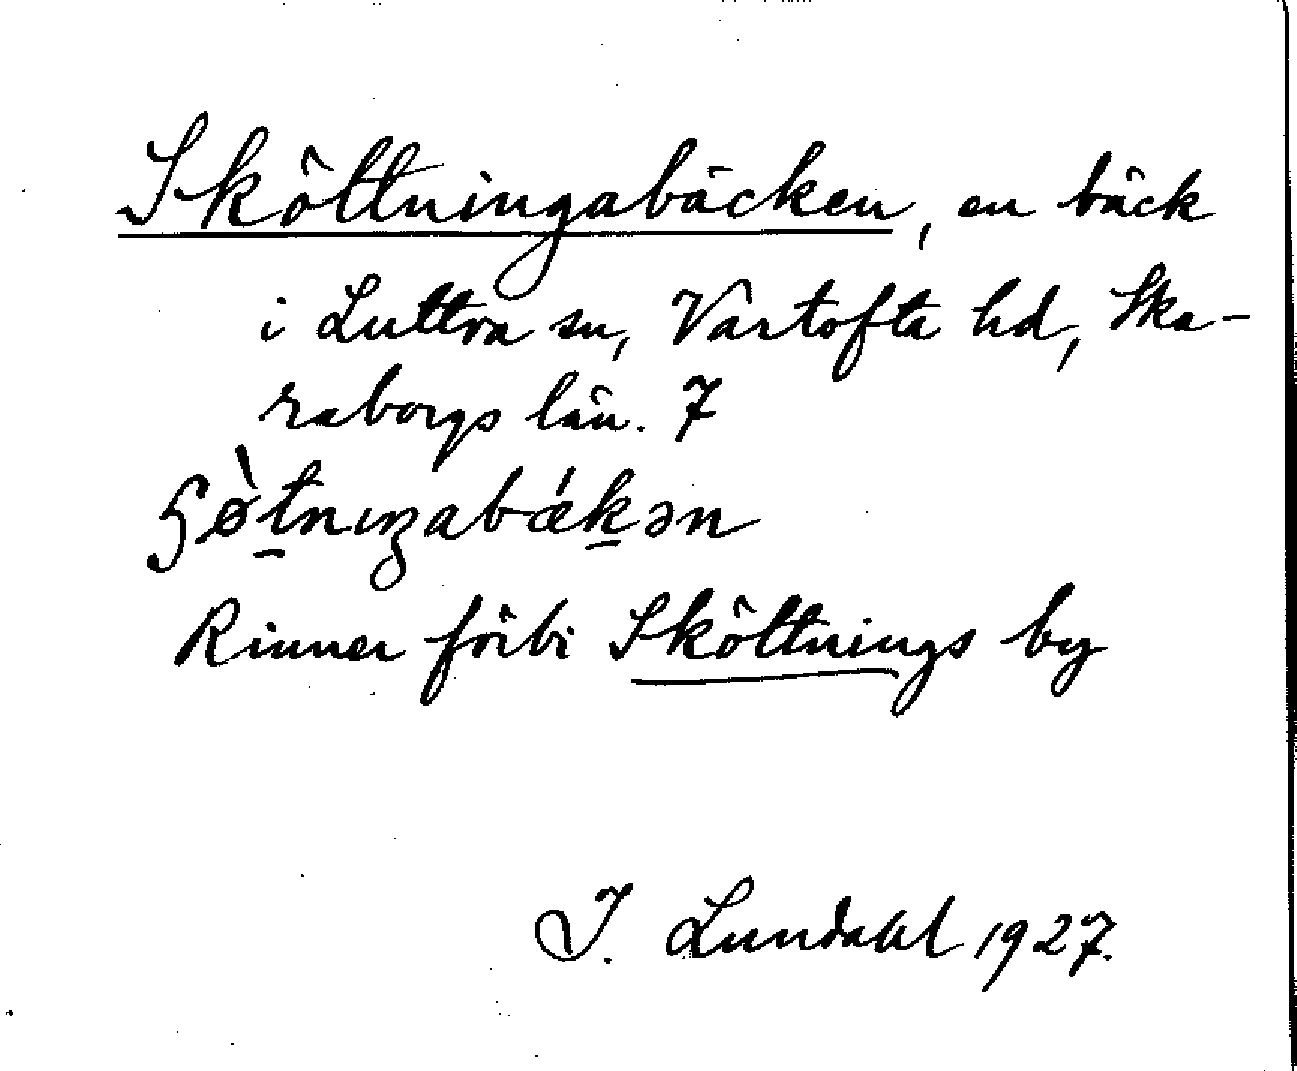 Sköttningabäcken, en bäck
i Luttra sn, Vartofta hd, Ska-
raborgs län. 7
Rinner förbi Sköttnings by
I. Lundahl 1927.